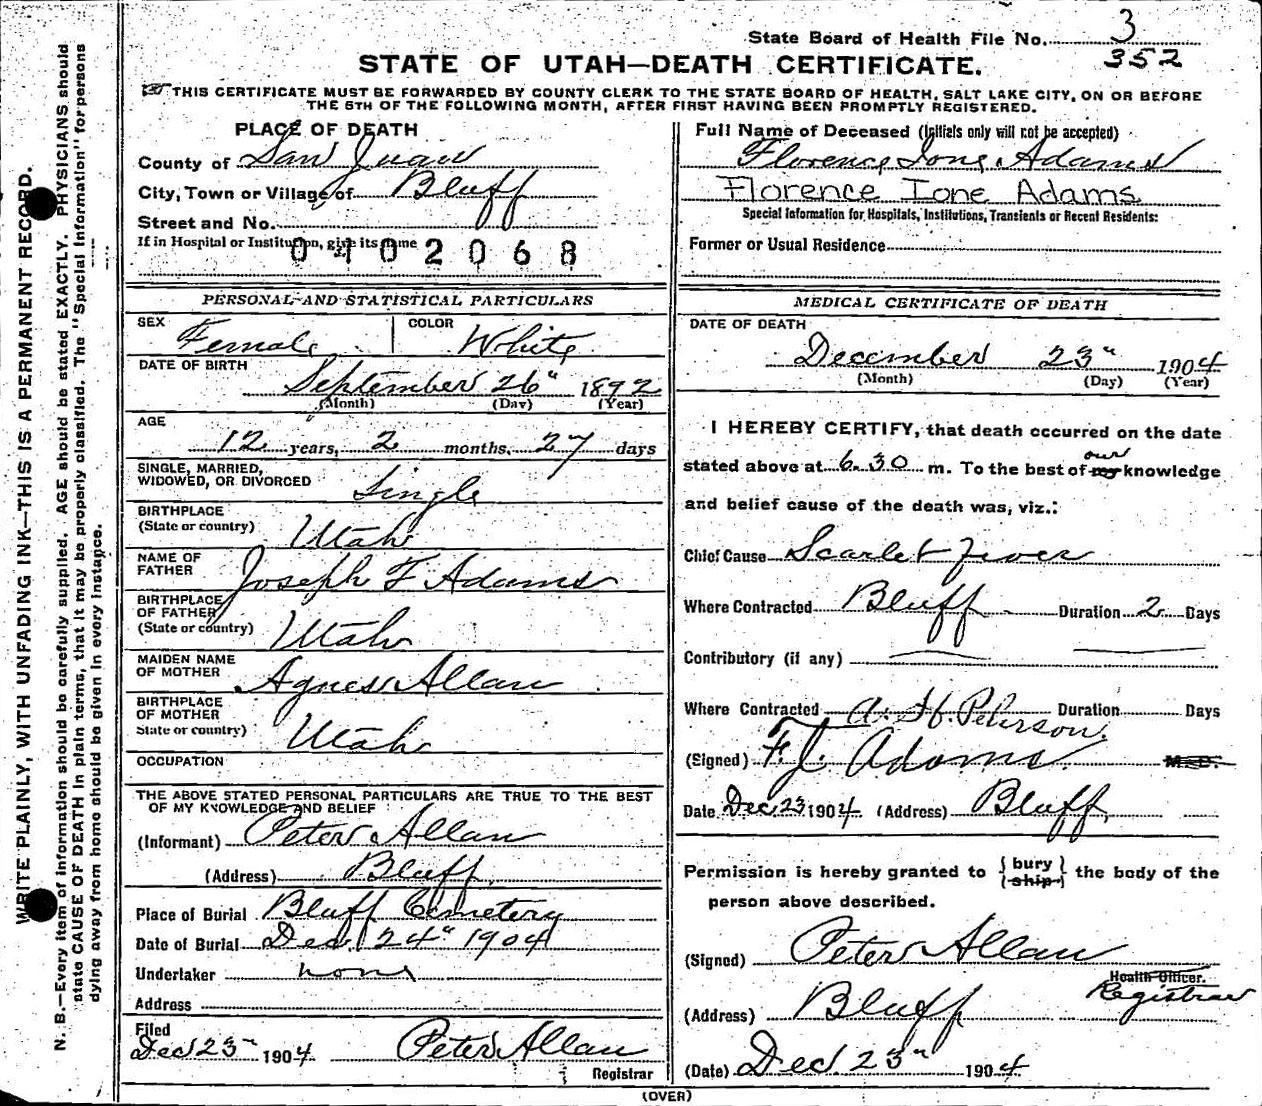 State Board of Health File No. 3
352
STATE OF UTAH—DEATH CERTIFICATE.
THIS CERTIFICATE MUST BE FORWARDED BY COUNTY CLERK TO THE STATE BOARD OF HEALTH, SALT LAKE CITY, ON OR BEFORE
THE 5TH OF THE FOLLOWING MONTH, AFTER FIRST HAVING BEEN PROMPTLY REGISTERED.
WRITE PLAINLY, WITH UNFADING INK—THIS IS A PERMANENT RECORD.
N. B.—Every item of information should be carefully supplied. AGE should be stated EXACTLY. PHYSICIANS should
state CAUSE OF DEATH in plain terms, that it may be properly classified. The "Special Information" for persons
dying away from home should be given in every instance.
PLACE OF DEATH
County of San Juan
City, Town or Village of Bluff
Street and No.
If in Hospital or Institution, give its name
0402068
PERSONAL AND STATISTICAL PARTICULARS
SEX Female COLOR White
DATE OF BIRTH
September 26" 1892
(Month) (Day) (Year)
AGE
12 years, 2 months, 27 days
SINGLE, MARRIED,
WIDOWED, OR DIVORCED Single
BIRTHPLACE
(State or country) Utah
NAME OF
FATHER Joseph F Adams
BIRTHPLACE
OF FATHER
(State or country) Utah
MAIDEN NAME
OF MOTHER Agnes Allan
BIRTHPLACE
OF MOTHER
State or country) Utah
OCCUPATION
THE ABOVE STATED PERSONAL PARTICULARS ARE TRUE TO THE BEST
OF MY KNOWLEDGE AND BELIEF
(Informant) Peter Allan
(Address) Bluff
Place of Burial Bluff Cemetery
Date of Burial Dec 24" 1904
Undertaker none
Address
Filed
Dec 23" 1904 Peter Allan
Registrar
Full Name of Deceased (Initials only will not be accepted)
Florence Ione Adams
Florence Ione Adams
Special Information for Hospitals, Institutions, Transients or Recent Residents:
Former or Usual Residence
MEDICAL CERTIFICATE OF DEATH
DATE OF DEATH
December 23" 1904
(Month) (Day) (Year)
I HEREBY CERTIFY, that death occurred on the date
our
stated above at 6.30 m. To the best of my knowledge
and belief cause of the death was, viz.:
Chief Cause Scarlet Fever
Where Contracted Bluff Duration 2 Days
Contributory (if any)
Where Contracted Duration Days
A. H. Peterson.
(Signed) F. J. Adams. M.D.
Date Dec 23 1904 (Address) Bluff
Permission is hereby granted to { bury } the body of the
{ ship }
person above described.
(Signed) Peter Allan
Health Officer.
Registrar
(Address) Bluff
(Date) Dec 23" 1904
(OVER)